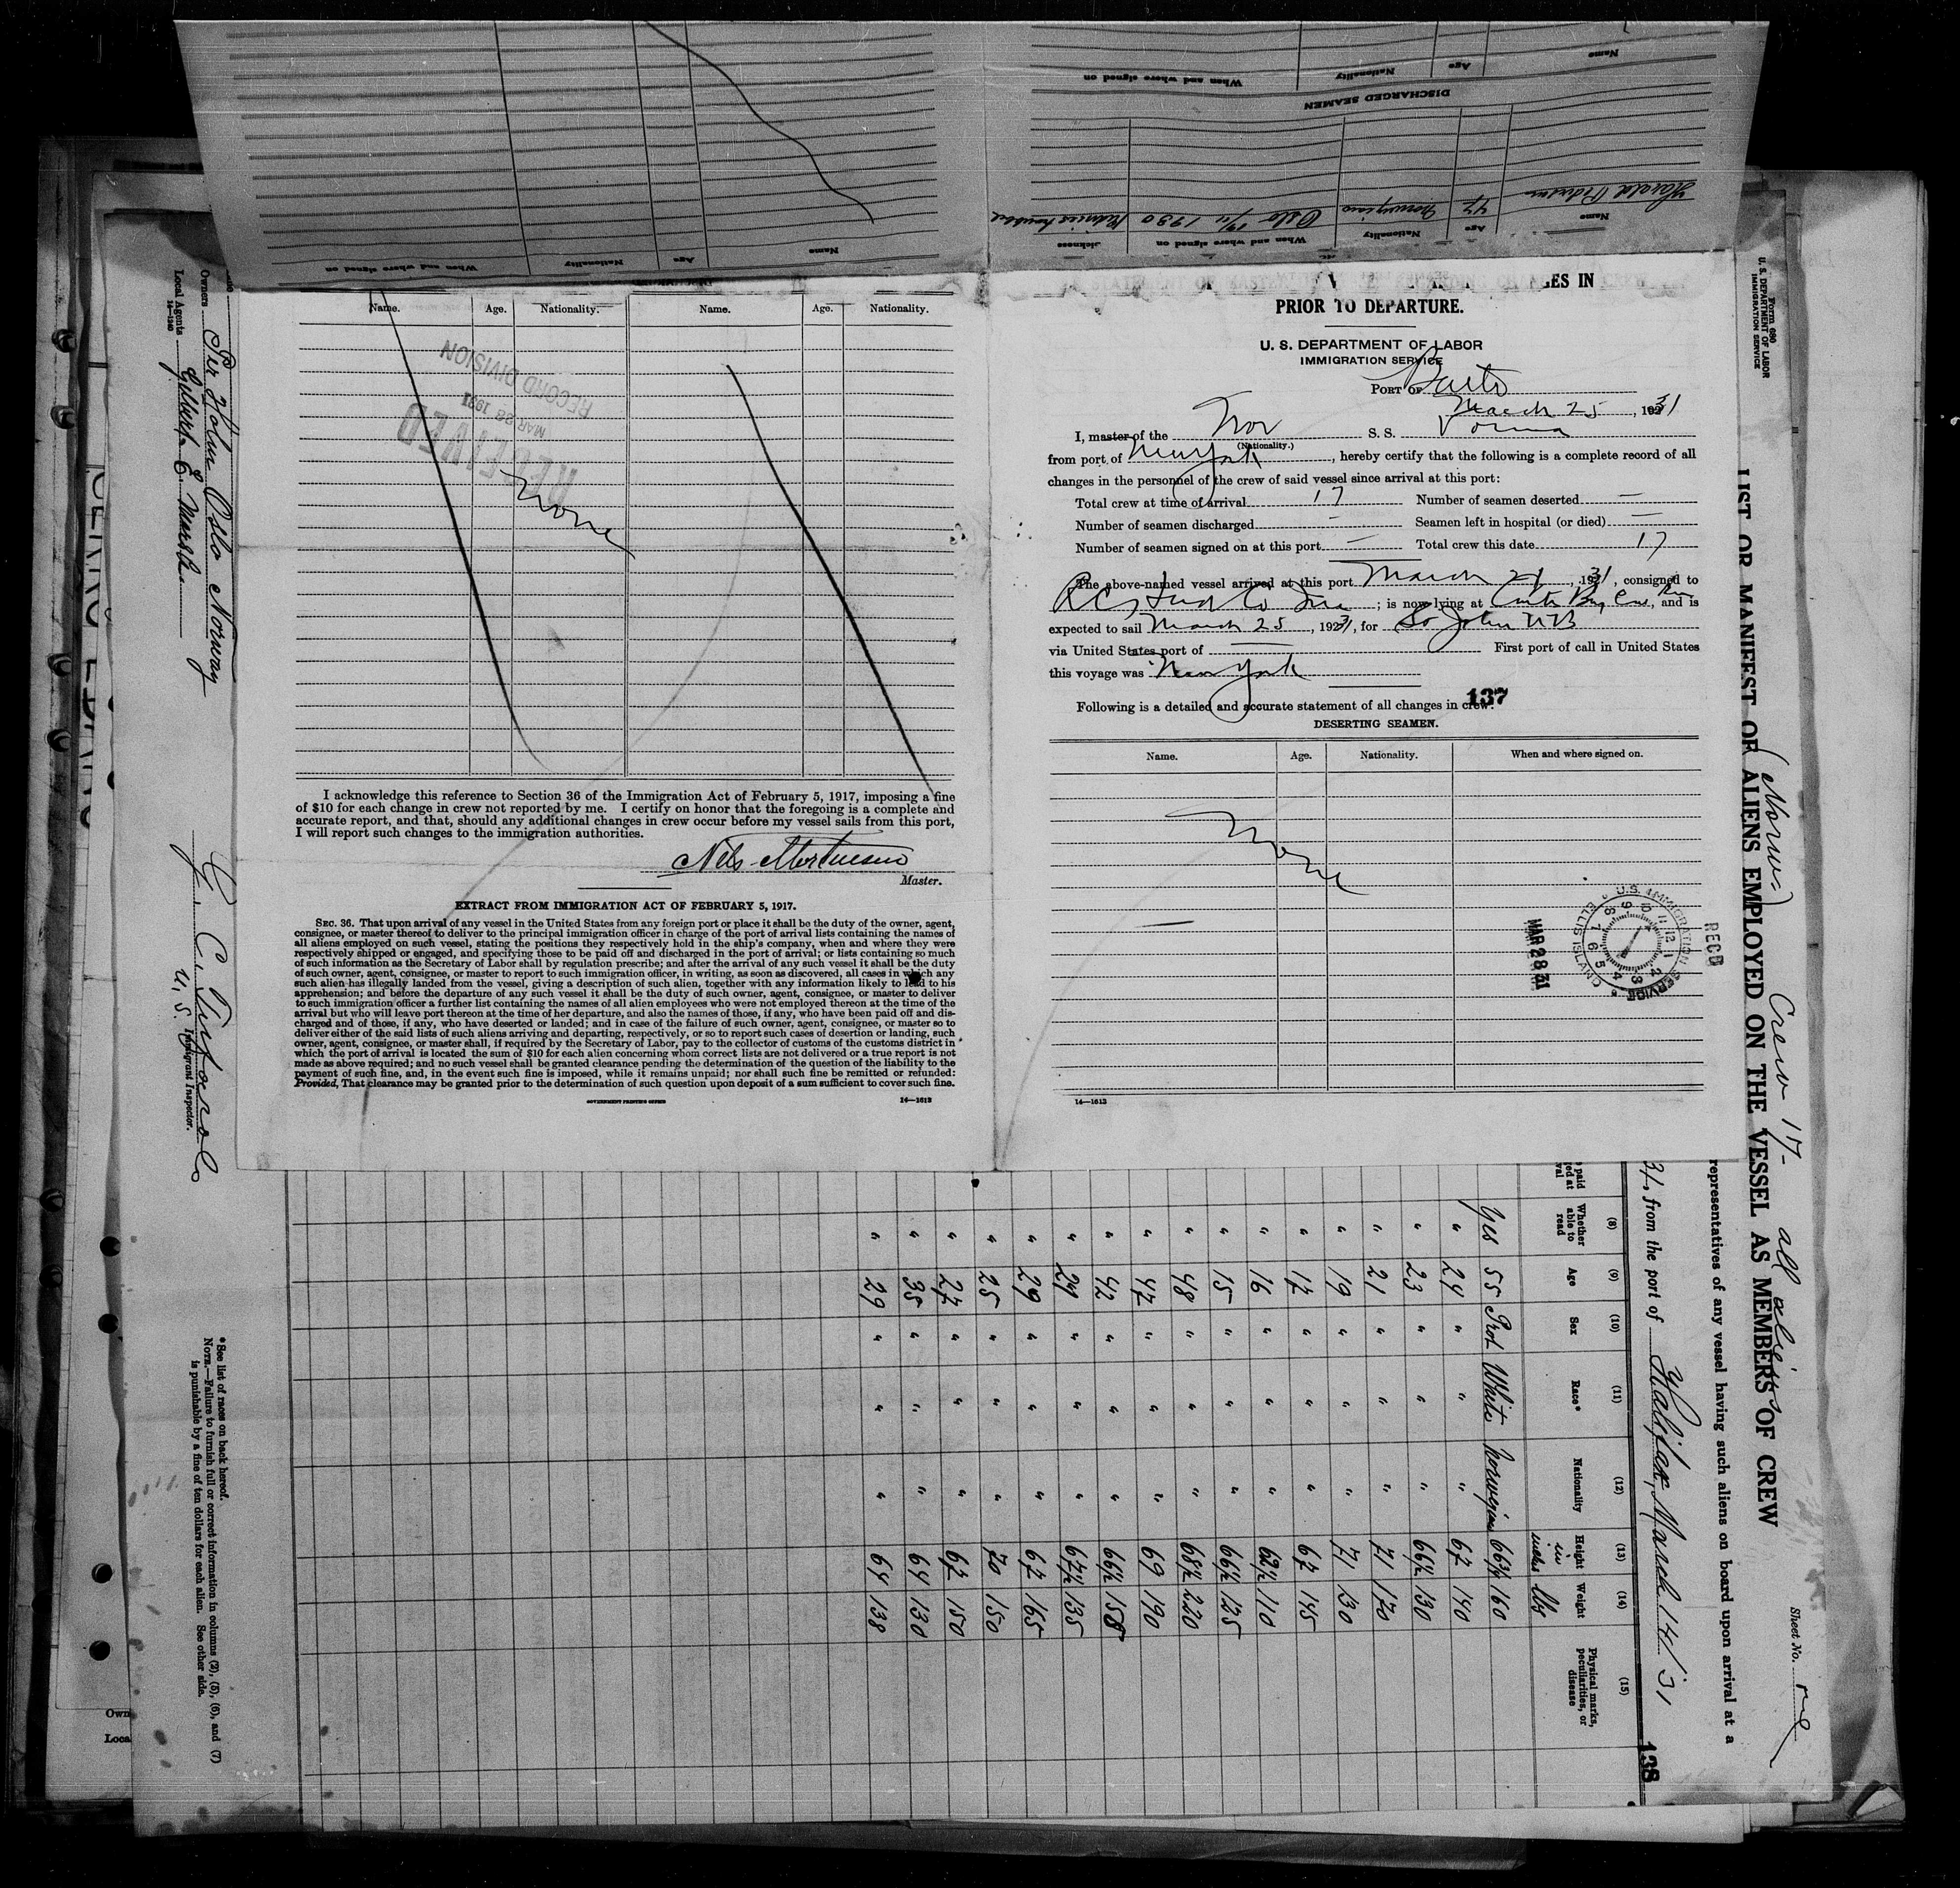 Name Age Nationality When and where signed on
DISCHARGED SEAMEN
Name Age Nationality When and where signed on Sickness
Harald 47 Norwegian Oslo 1930
Name Age Nationality When and where signed on
Name. Age. Nationality. Name. Age. Nationality.
RECEIVED
MAR 28 1931
RECORD DIVISION
None
I acknowledge this reference to Section 36 of the Immigration Act of February 5, 1917, imposing a fine
of $10 for each change in crew not reported by me. I certify on honor that the foregoing is a complete and
accurate report, and that, should any additional changes in crew occur before my vessel sails from this port,
I will report such changes to the immigration authorities.
Nels
Master.
EXTRACT FROM IMMIGRATION ACT OF FEBRUARY 5, 1917.
SEC. 36. That upon arrival of any vessel in the United States from any foreign port or place it shall be the duty of the owner, agent,
consignee, or master thereof to deliver to the principal immigration officer in charge of the port of arrival lists containing the names of
all aliens employed on such vessel, stating the positions they respectively hold in the ship's company, when and where they were
respectively shipped or engaged, and specifying those to be paid off and discharged in the port of arrival; or lists containing so much
of such information as the Secretary of Labor shall by regulation prescribe; and after the arrival of any such vessel it shall be the duty
of such owner, agent, consignee, or master to report to such immigration officer, in writing, as soon as discovered, all cases in which any
such alien has illegally landed from the vessel, giving a description of such alien, together with any information likely to lead to his
apprehension; and before the departure of any such vessel it shall be the duty of such owner, agent, consignee, or master to deliver
to such immigration officer a further list containing the names of all alien employees who were not employed thereon at the time of the
arrival but who will leave port thereon at the time of her departure, and also the names of those, if any, who have been paid off and dis-
charged and of those, if any, who have deserted or landed; and in case of the failure of such owner, agent, consignee, or master so to
deliver either of the said lists of such aliens arriving and departing, respectively, or so to report such cases of desertion or landing, such
owner, agent, consignee, or master shall, if required by the Secretary of Labor, pay to the collector of customs of the customs district in
which the port of arrival is located the sum of $10 for each alien concerning whom correct lists are not delivered or a true report is not
made as above required; and no such vessel shall be granted clearance pending the determination of the question of the liability to the
payment of such fine, and, in the event such fine is imposed, while it remains unpaid; nor shall such fine be remitted or refunded:
Provided, That clearance may be granted prior to the determination of such question upon deposit of a sum sufficient to cover such fine.
GOVERNMENT PRINTING OFFICE 14—1613
GES IN
PRIOR TO DEPARTURE.
U. S. DEPARTMENT OF LABOR
IMMIGRATION SERVICE
PORT OF Balto
March 25, 1931
I, master of the Nor S. S. Vorma
(Nationality.)
from port of New York, hereby certify that the following is a complete record of all
changes in the personnel of the crew of said vessel since arrival at this port:
Total crew at time of arrival 17 Number of seamen deserted —
Number of seamen discharged — Seamen left in hospital (or died) —
Number of seamen signed on at this port — Total crew this date 17
The above-named vessel arrived at this port March 21, 1931, consigned to
; is now lying at Curtis Bay, and is
expected to sail March 25, 1931, for St John NB
via United States port of — First port of call in United States
this voyage was New York
Following is a detailed and accurate statement of all changes in crew.
137
DESERTING SEAMEN.
Name. Age. Nationality. When and where signed on.
None
REC'D
U.S. IMMIGRATION SERVICE ELLIS ISLAND
MAR 28 31
14—1613
Form 680
U. S. DEPARTMENT OF LABOR
IMMIGRATION SERVICE
Crew 17- all aliens
Sheet No. one
LIST OR MANIFEST OF ALIENS EMPLOYED ON THE VESSEL AS MEMBERS OF CREW
representatives of any vessel having such aliens on board upon arrival at a
31, from the port of Halifax, March 14/31
138
(8) (9) (10) (11) (12) (13) (14) (15)
Whether able to read Age Sex Race* Nationality Height in inches Weight lbs Physical marks, peculiarities, or disease
Yes 55 Prot White Norwegian 66¾ 160
" 24 " " " 67 140
" 23 " " " 66½ 130
" 21 " " " 71 170
" 19 " " " 71 130
" 17 " " " 67 145
" 16 " " " 62½ 110
" 15 " " " 66½ 125
" 48 " " " 68½ 220
" 47 " " " 69 190
" 42 " " " 66½ 158
" 24 " " " 67½ 135
" 29 " " " 67 165
" 25 " " " 70 150
" 27 " " " 67 150
" 35 " " " 64 130
" 29 " " " 64 138
Owners Per Holm Oslo Norway
Local Agents Gilbert E.
14—1240
G. C.
U. S. Immigrant Inspector.
*See list of races on back hereof.
NOTE.—Failure to furnish full or correct information in columns (2), (5), (6), and (7)
is punishable by a fine of ten dollars for each alien. See other side.
Own
Loca